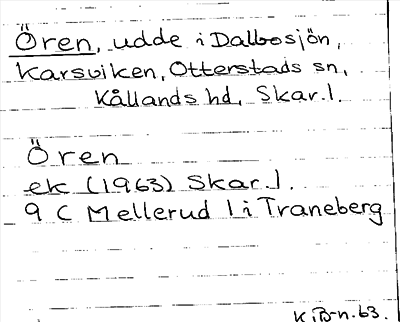 Ören, udde i Dalbosjön,
Karsviken, Otterstads sn,
Kållands hd, Skar.l.
Ören
ek (1963) Skar.l.
9 C Mellerud 1 i Traneberg